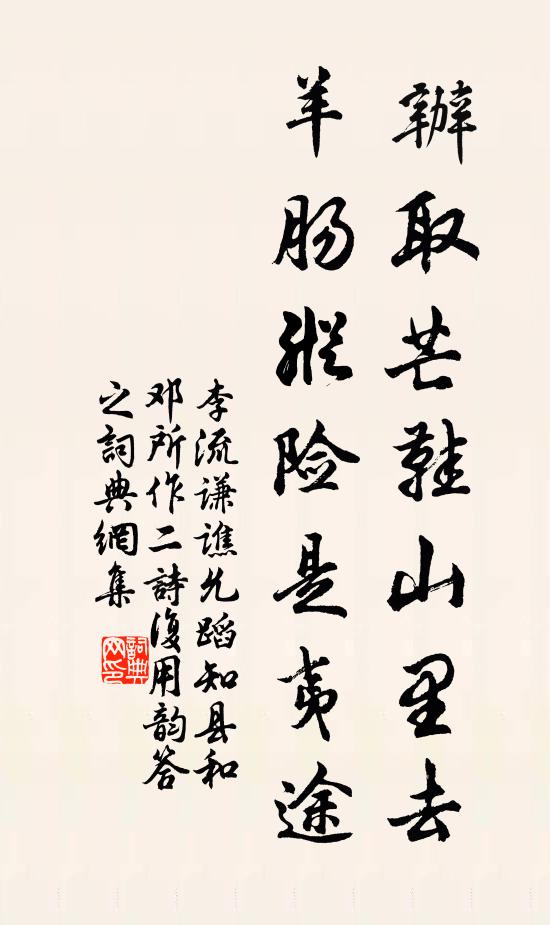 辦取芒鞋山里去
羊肠縱险是夷途
李流谦譙允蹈知县和
邓所作二詩復用韵答
之詞典網集
詞典
网印